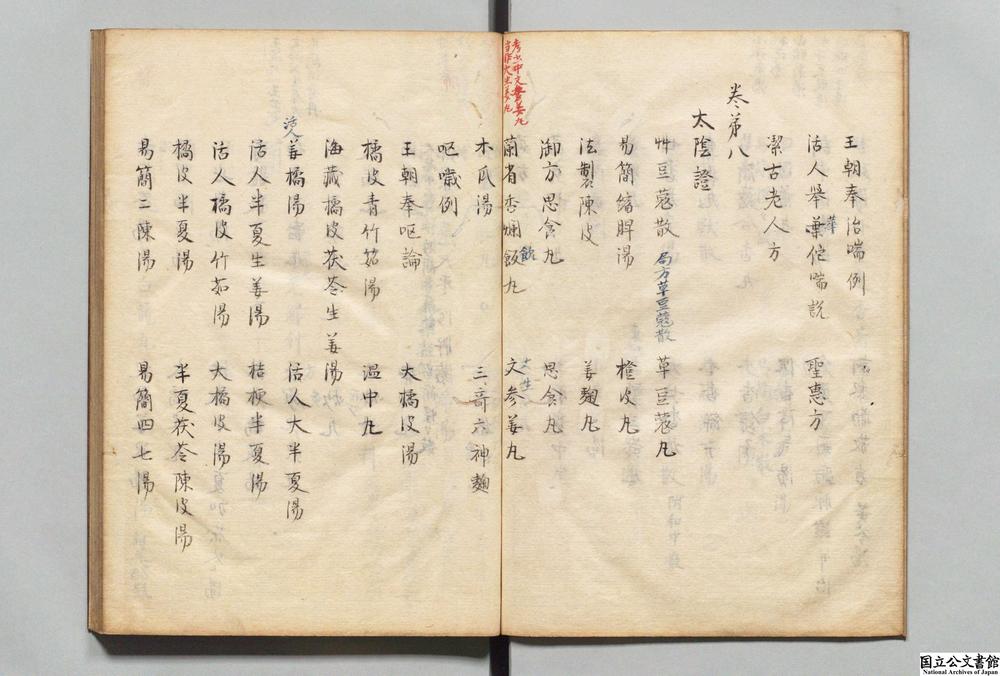 王朝奉治喘例
活人举華佗喘説　聖惠方
潔古老人方
卷第八
太陰證
艸豆蔻散　局方草豆蔻散　草豆蔻丸
易簡縮脾湯　橙皮丸
法製陳皮　姜麴丸
御方思食丸　思食丸
蘭省香爛飯丸　文参姜丸
木瓜湯　三哥六神麹
呕噦例
王朝奉呕論　大橘皮湯
橘皮青竹茹湯　温中丸
海藏橘皮茯苓生姜湯
活人姜橘湯　活人大半夏湯
活人半夏生姜湯　桔梗半夏湯
活人橘皮竹茹湯　大橘皮湯
橘皮半夏湯　半夏茯苓陳皮湯
易簡二陳湯　易簡四七湯
国立公文書館
National Archives of Japan